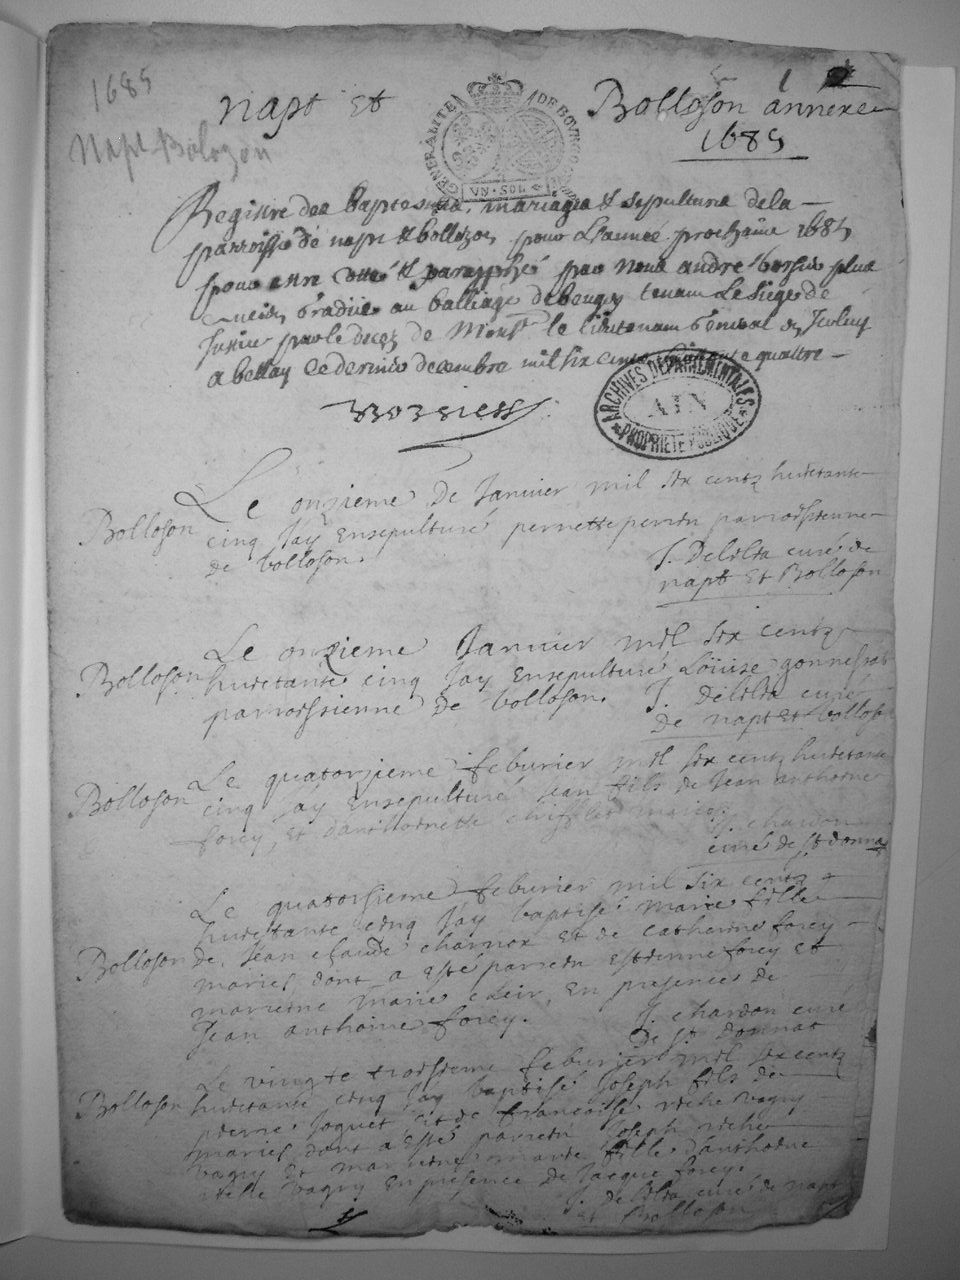 1685
1
napt et Bolloson annexe
1685
Napt-Bolozon
GENERALITE DE BOURGOGNE
Registre des baptesmes, mariages & sepulture de la
parroisse de napt & bollozon pour L'annee prochaine 1685
pour estre cotté & parapphé par nous andre borsier plus
antien gradué au balliage de beugey tenant Le siege de
Justice par le decez de Mons.r le lieutenant General
a bellay ce dernier decembre mil six cents huictante quattre
ARCHIVES DÉPARTEMENTALES
AIN
PROPRIÉTÉ PUBLIQUE
Le onzieme de Janvier mil six centz huictante
Bolloson
cinq Jay Ensepulturé pernette perrin parroissienne
de bolloson.
J. Delilia curé de
napt Et Bolloson
Le onzieme Janvier mil six centz
Bolloson
huictante cinq Jay Ensepulturé Loüise
parroissienne de bolloson.
J. delilia curé
de napt Et bolloson
Le quatorzieme feburier mil six centz huictante
Bolloson
cinq Jáy Ensepulturé Jean fils de Jean anthoine
forey, Et d'anthoinette mariés.
J. chardon
curé de St donnat
Le quatorsieme feburier mil six centz
huictante cinq Jay baptisé marie fille
Bolloson
de Jean claude charnox Et de catherine forey
mariés dont a esté parrein Estienne forey et
marreine marie clair, En presence de
Jean anthoine forey.
J. chardon curé
De St donnat
Le vingte troisieme feburier mil six centz
Bolloson
huictante cinq Jay baptisé Joseph fils de
pierre Joguet Et de francoise riche vagny
mariés dont a esté parrein Joseph riche
vagny Et marreine marie fille d'anthoine
riche vagny En presence de Jacque forey.
J. de lilia curé de napt
Et Bolloson